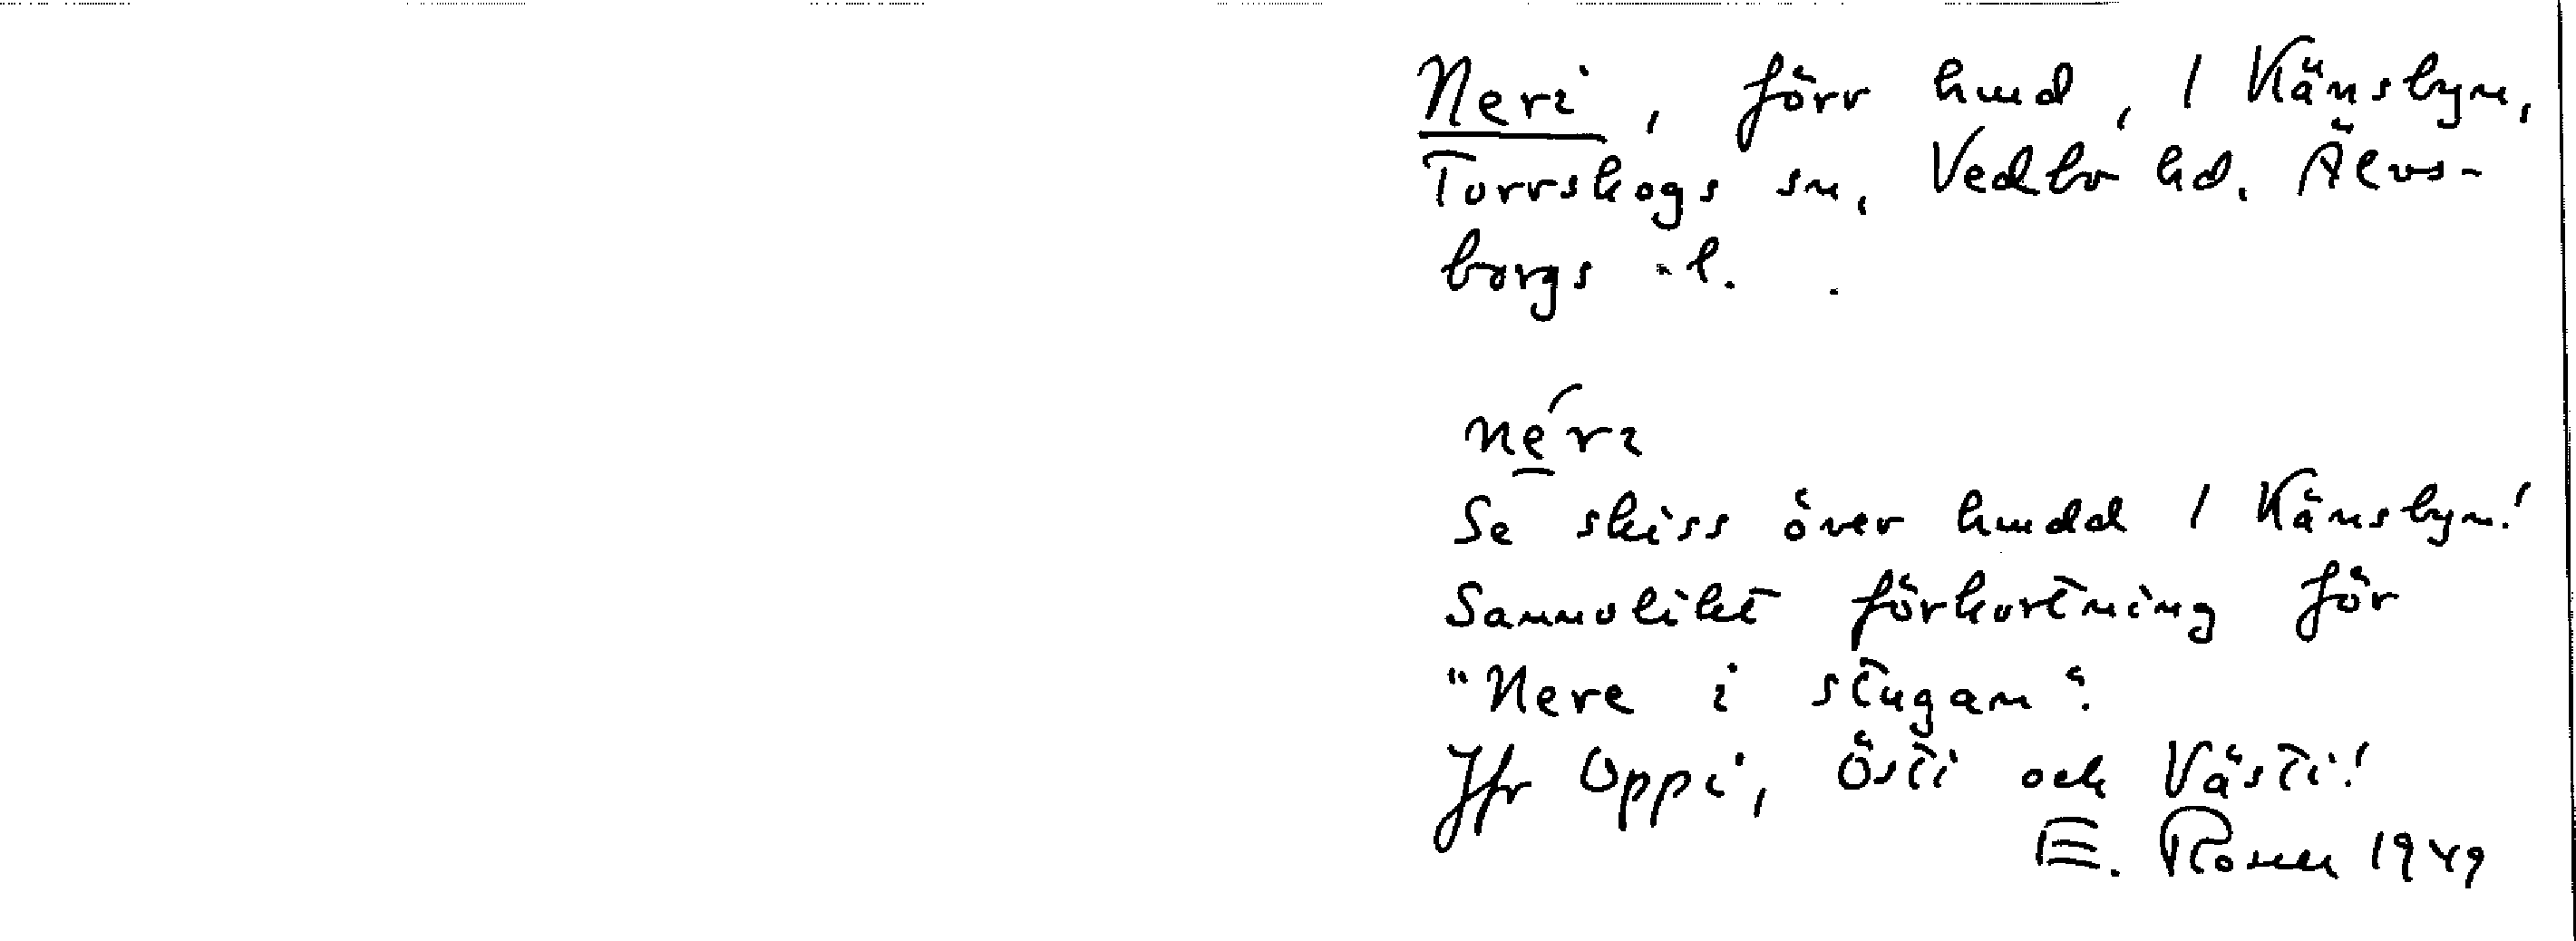 Neri, förr hmd, 1 Känsbyn,
Torrskogs sn, Vedbo hd. Älvs-
borgs l.
néri
Se skiss över hmdd 1 Känsbyn!
Sannolikt förkortning för
"Nere i stugan".
Jfr Oppi, Östi och Västi!
E. 1949